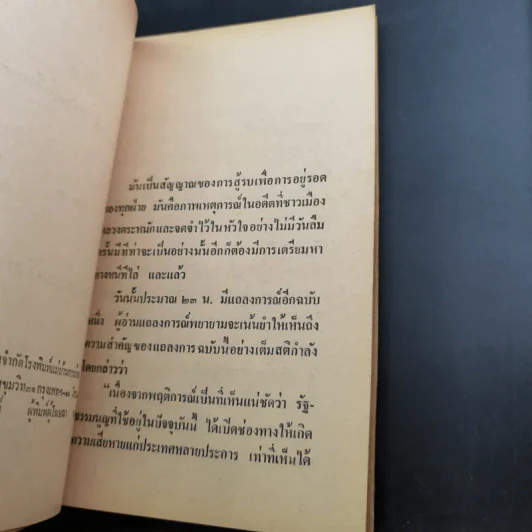 จำกัดโรงพิมพ์
ขุมวิท๓๑ กรุงเทพฯ-๑
ผู้พิมพ์ผู้โฆษณา
มันเป็นสัญญาณของการสู้รบเพื่อการอยู่รอด
ของทุกฝ่าย มันคือภาพเหตุการณ์ในอดีตที่ชาวเมือง
หลวงตระหนักและจดจำไว้ในหัวใจอย่างไม่มีวันลืม
ครั้นมีทีท่าจะเป็นอย่างนั้นอีกก็ต้องมีการเตรียมหา
ทางหนีทีไล่ และแล้ว
วันนั้นประมาณ ๒๓ น. มีแถลงการณ์อีกฉบับ
หนึ่ง ผู้อ่านแถลงการณ์พยายามจะเน้นย้ำให้เห็นถึง
ความสำคัญของแถลงการ ฉบับนี้อย่างเต็มสติกำลัง
โดยกล่าวว่า
"เนื่องจากพฤติการณ์เป็นที่เห็นแน่ชัดว่า รัฐ-
ธรรมนูญที่ใช้อยู่ในปัจจุบันนี้ ได้เปิดช่องทางให้เกิด
ความเสียหายแก่ประเทศหลายประการ เท่าที่เห็นได้